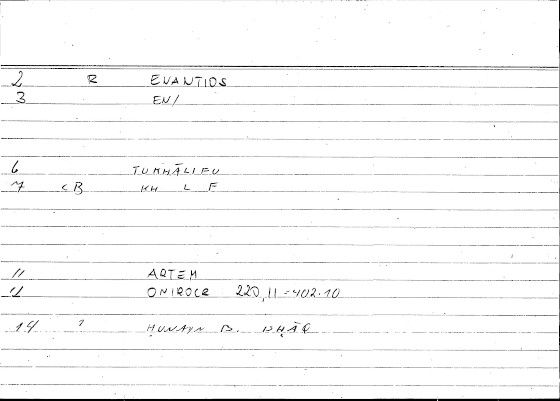 2 R ENANTIOS
3 EN/
6 TUKHĀLIFU
7 CB KH L F
11 ARTEM
12 ONIROCR 220,11=402.10
14 1 ḤUNAYN B. ISḤĀQ